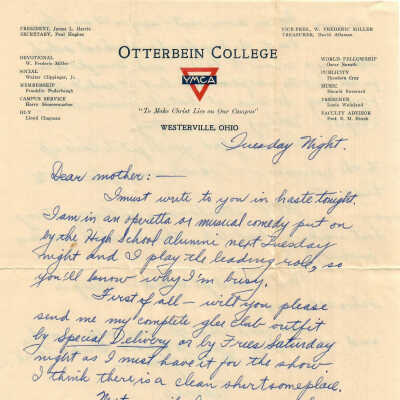 PRESIDENT, James L. Harris
SECRETARY, Paul Hughes
VICE-PRES., W. FREDERIC MILLER
TREASURER, David Allaman
OTTERBEIN COLLEGE
DEVOTIONAL
W. Frederic Miller
SOCIAL
Walter Clippinger, Jr.
MEMBERSHIP
Franklin Puderbaugh
CAMPUS SERVICE
HI-Y
Lloyd Chapman
YMCA
WORLD FELLOWSHIP
PUBLICITY
Theodore Croy
MUSIC
FRESHMEN
Louis Weinland
FACULTY ADVISOR
"To Make Christ Live on Our Campus"
WESTERVILLE, OHIO
Tuesday Night.
Dear mother: —
I must write to you in haste tonight.
I am in an operetta or musical comedy put on
by the High School Alumni next Tuesday
night and I play the leading role, so
you'll know why I'm busy.
First of all — will you please
send me my complete glee club outfit
by Special Delivery or by Frees Saturday
night as I must have it for the show
I think there is a clean shirt someplace.